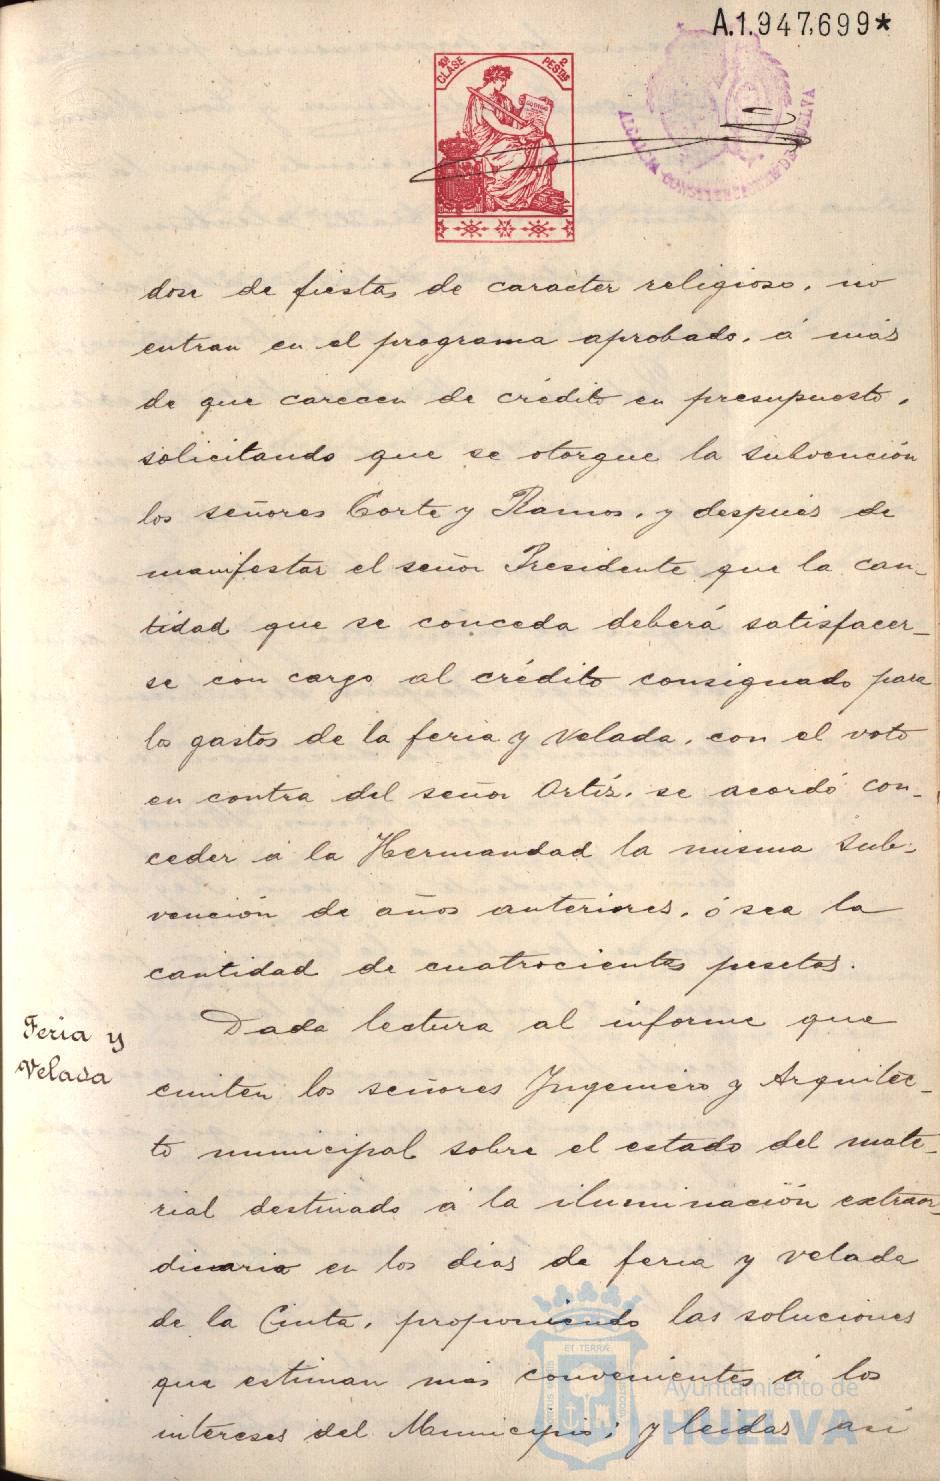 A.1.947,699*
10ª CLASE
2 PESTAS
ALCALDIA CONSTITUCIONAL DE HUELVA
dose de fiestas de carácter religioso, no
entran en el programa aprobado, á más
de que carecen de crédito en presupuesto,
solicitando que se otorgue la subvención
los señores Corte y Ramos, y después de
manifestar el señor Presidente que la can-
tidad que se conceda deberá satisfacer-
se con cargo al crédito consignado para
los gastos de la feria y velada, con el voto
en contra del señor Ortíz, se acordó con-
ceder á la Hermandad la misma sub-
vención de años anteriores, ó sea la
cantidad de cuatrocientas pesetas.
Feria y
Velada
Dada lectura al informe que
emiten los señores Ingeniero y Arquitec-
to municipal sobre el estado del mate-
rial destinado á la iluminación extraor-
dinaria en los dias de feria y velada
de la Cinta, proponiendo las soluciones
que estiman mas convenientes á los
intereses del Municipio; y leidas así
ET TERRA
Ayuntamiento de
HUELVA